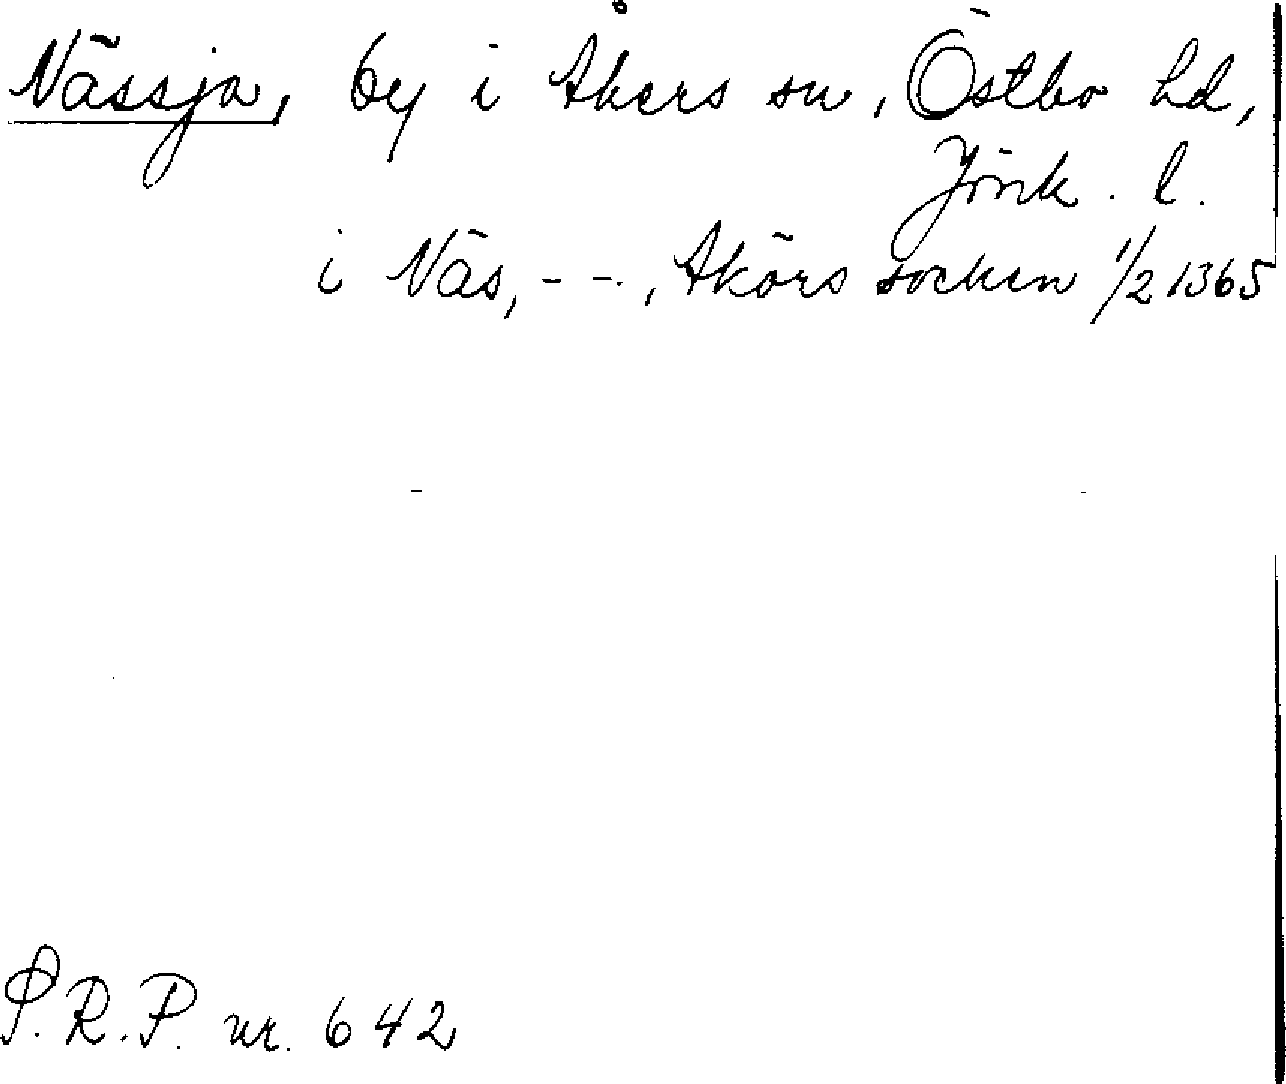 Nässja, by i Åkers sn, Östbo hd,
Jönk. l.
i Näs, - - , Akörs socken 1/2 1365
S.R.P. nr. 642